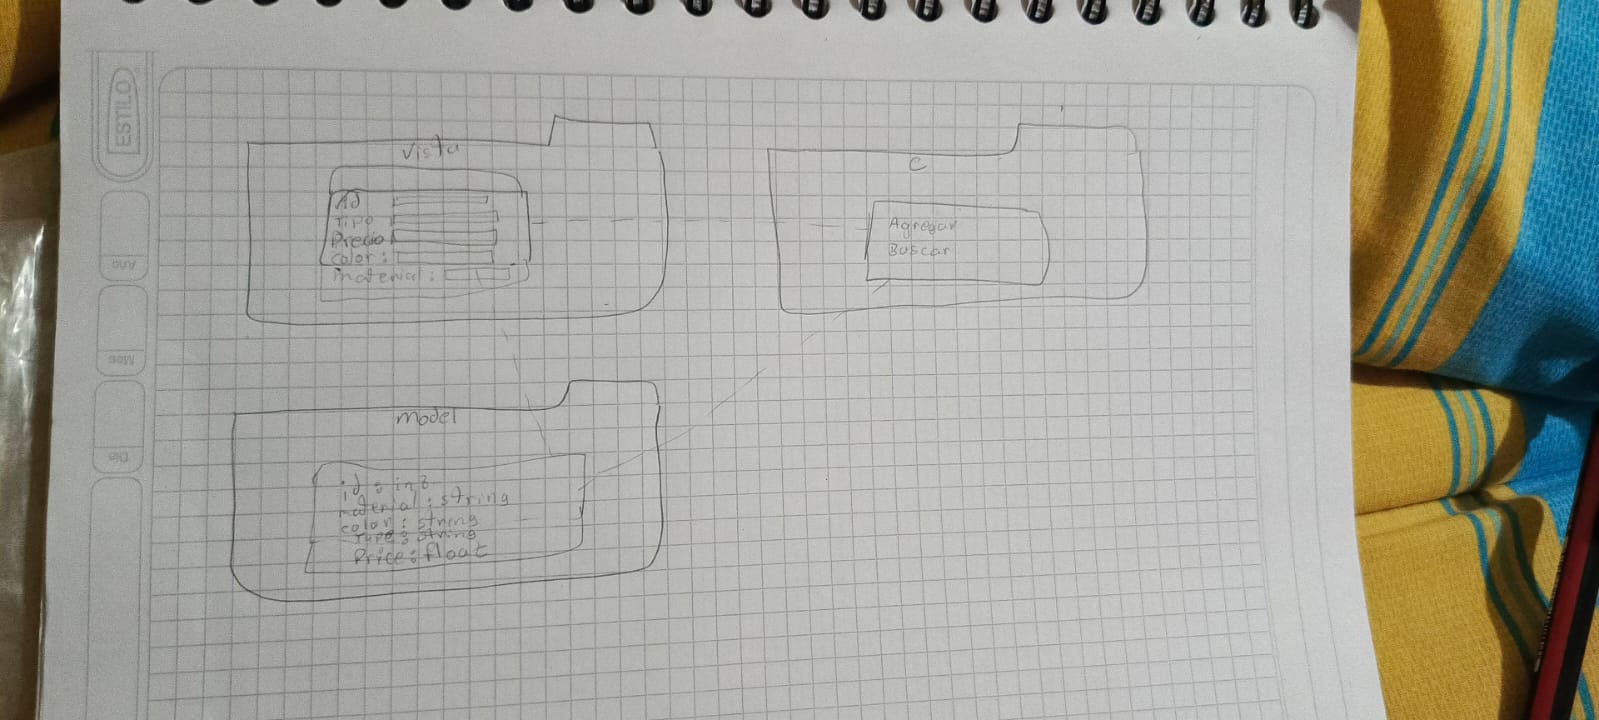 ESTILO
Año
Mes
Día
Vista
Id
Tipo
Precio
color :
material :
C
Agregar
Buscar
model
id : int
material : string
color : string
Type : string
Price : float